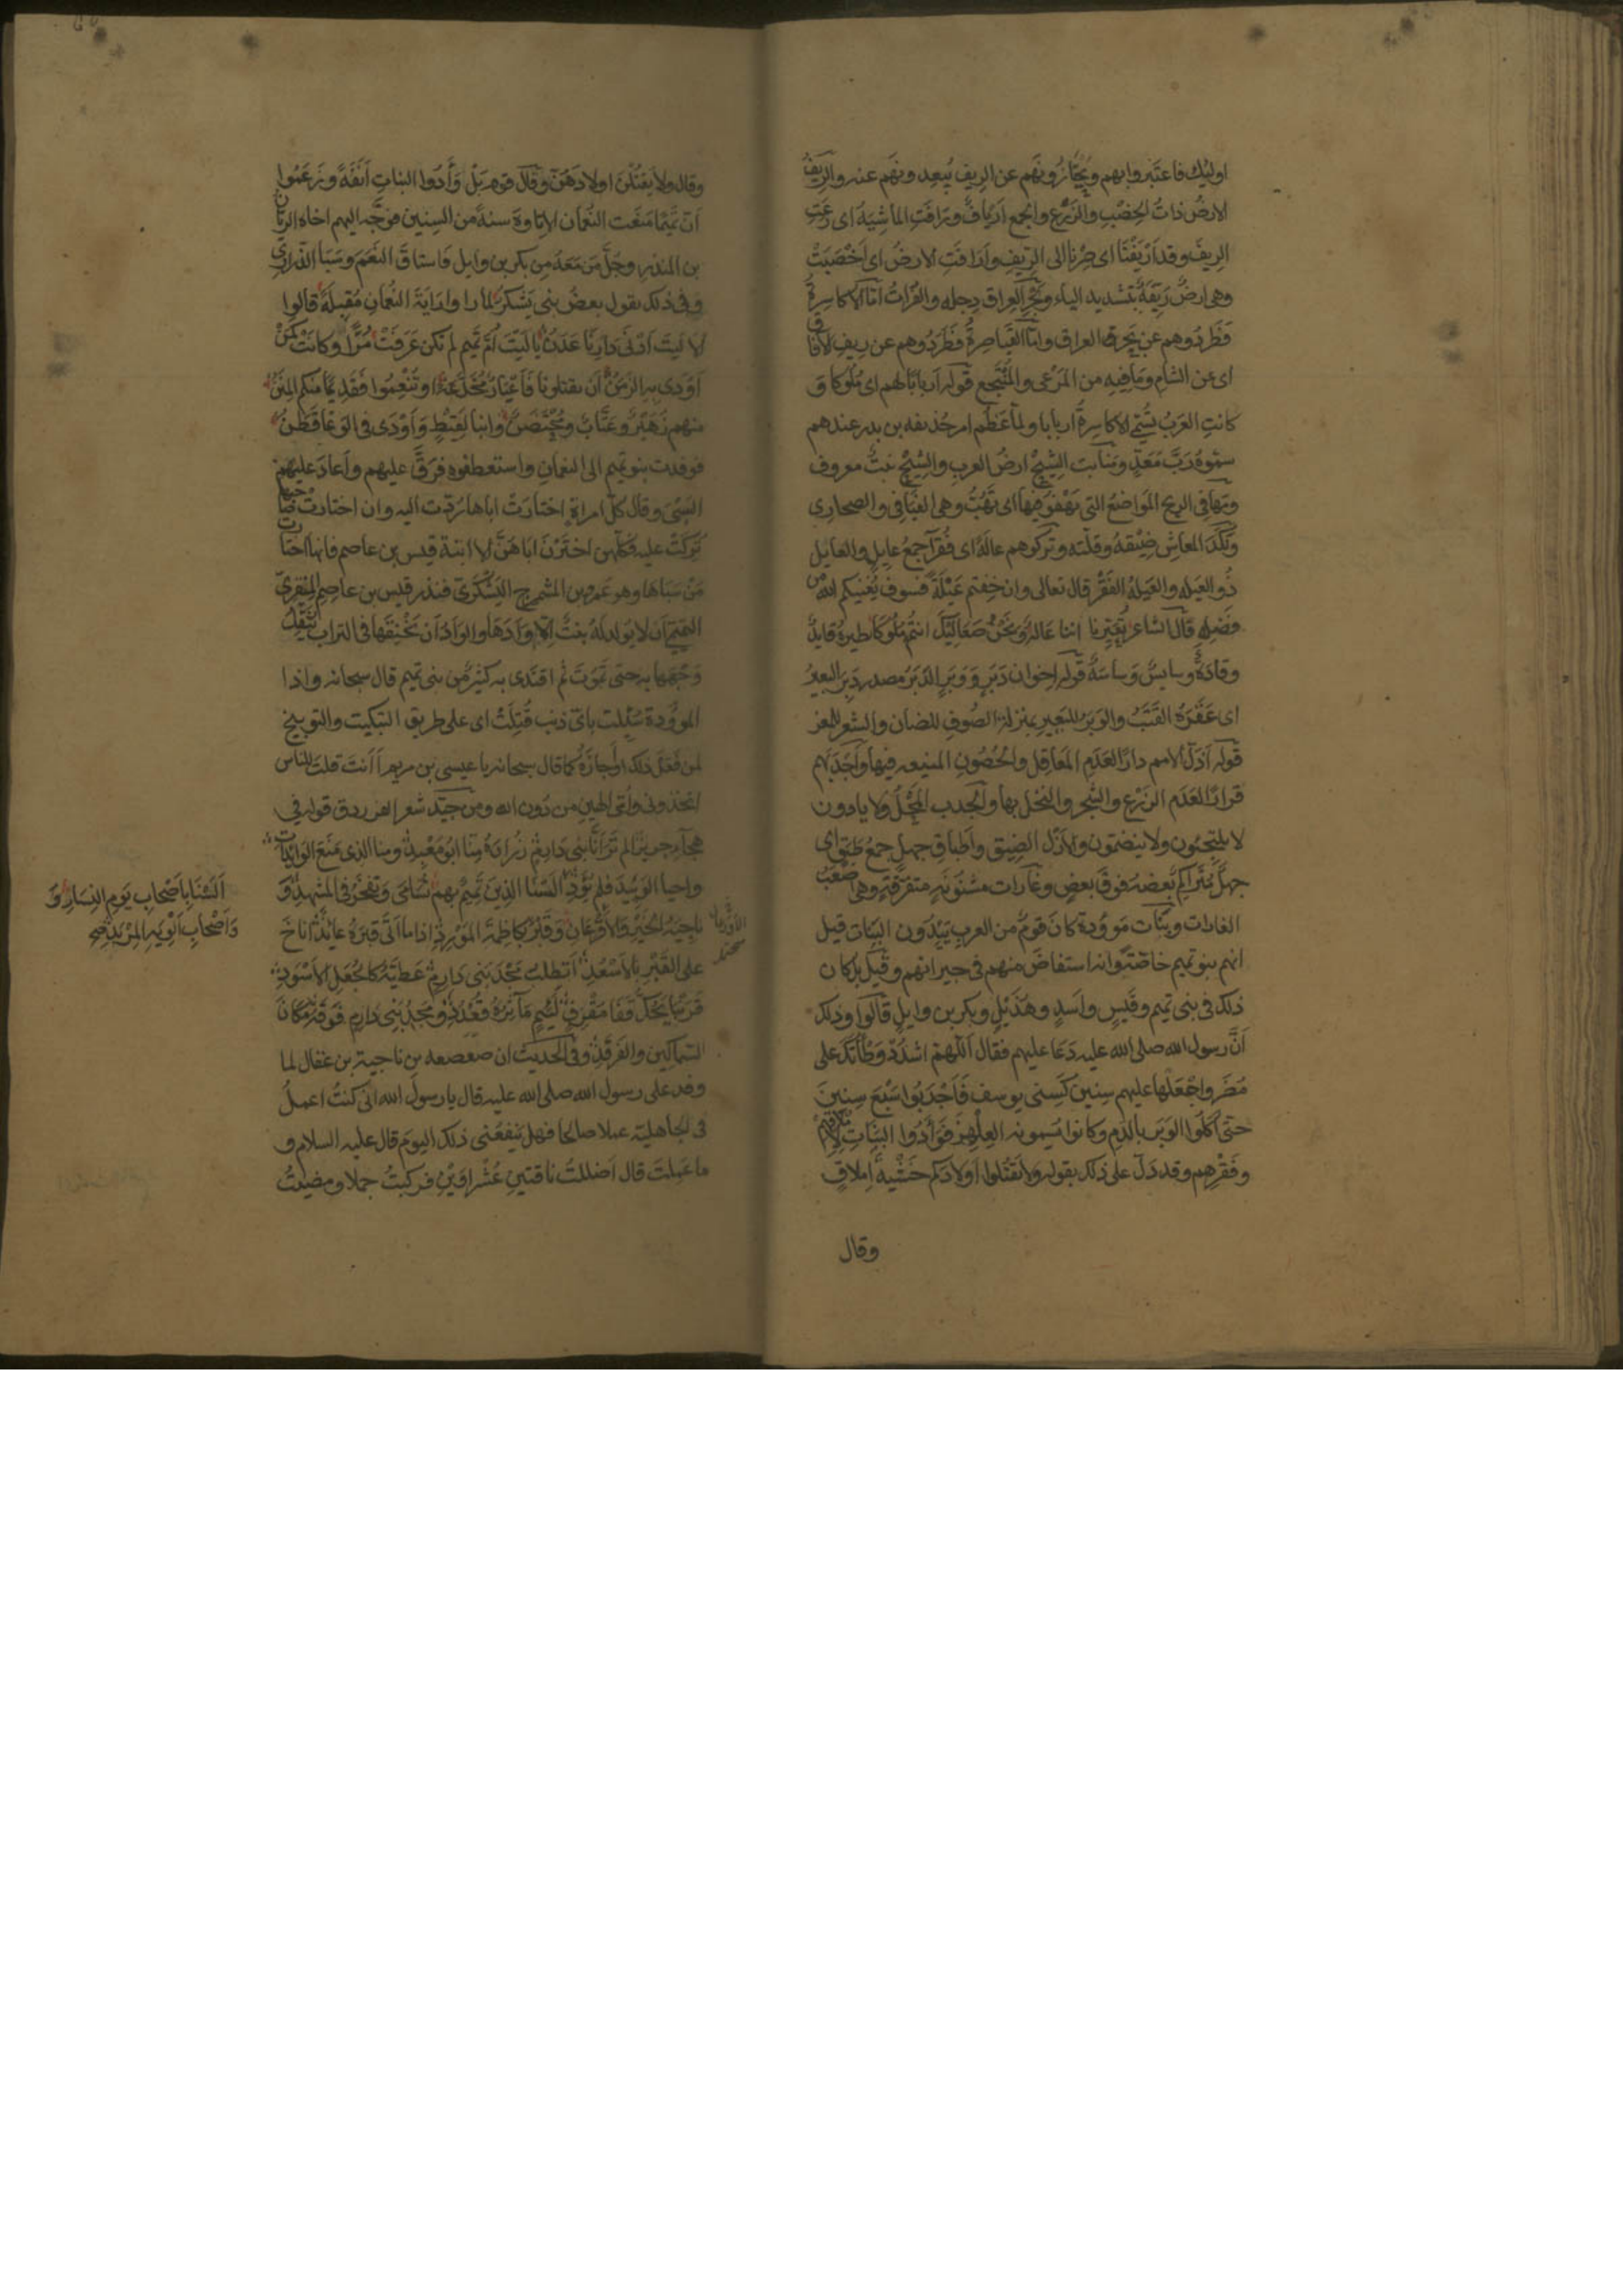 اوليك فاعتبروا بهم ويحتازونهم عن الريف يبعدونهم عنه والريف
الارض ذات الخصب والزرع والجمع ارياف ورافت الماشية اى رعت
الريف وقد اريفنا اى صرنا الى الريف وارافت الارض اى اخصبت
وهى ارض ريفة بتشديد الياء وبحر العراق دجله والفرات اما الاكاسرة
فطردوهم عن بحر العراق واما القياصرة فطردوهم عن ريف الافاق
اى عن الشام وما فيه من المرعى والمنتجع قوله اربابا لهم اى ملوكا و
كانت العرب تسمى الاكاسرة اربابا ولما عظم امر حذيفه بن بدر عندهم
سموه رب معد ومنابت الشيح ارض العرب والشيح نبت معروف
ومهافى الريح المواضع التى تهفو فيها اى تهب وهى الفيافى والصحارى
ونكد المعاش ضيقه وقلته وتركوهم عالة اى فقرآ جمع عايل والعايل
ذو العيله والعيلة الفقر قال تعالى وان خفتم عيلة فسوف يغنيكم الله من
فضله قال الشاعر يعيرنا اننا عالة ونحن صعاليك انتم ملوكا نظيره قايد
وقادة وسايس وساسة قوله اخوان دبر ووبر الدبر مصدر دبر البعير
اى عقره القتب والوبر للبعير بمنزلة الصوف للضان والشعر للمعز
قوله اذل الامم دارا لعدم المعاقل والحصون المنيعه فيها واجدبهم
قرارا لعدم الزرع والشجر والنخل بها والجدب المحل ولا ياوون
لا يلتجئون ولا ينضمون والازل الضيق واطباق جهل جمع طبق اى
جهل متراكم بعضه فوق بعض وغارات مشنونة متفرقة وهى اصعب
الغارات وبنات موؤدة كان قوم من العرب يئدون البنات قيل
انهم بنو تميم خاصة وانه استفاض منهم فى جيرانهم وقيل بل كان
ذلك فى بنى تميم وقيس واسد وهذيل وبكر بن وايل قالوا وذلك
ان رسول الله صلى الله عليه دعا عليهم فقال اللهم اشدد وطأتك على
مضر واجعلها عليهم سنين كسنى يوسف فاجدبوا سبع سنين
حتى اكلوا الوبر بالدم وكانوا يسمونه العلهز فوأدوا البنات لاملاقهم
وفقرهم وقد دل على ذلك بقوله ولا تقتلوا اولادكم خشية املاق
وقال
وقال ولا يقتلن اولادهن وقال قوم بل وأدوا البنات انفة وزعموا
ان تميما منعت النعمان الاتاوة سنة من السنين فوجه اليهم اخاه الريان
بن المنذر وجل من معه من بكر بن وايل فاستاق النعم وسبا الذرارى
وفى ذلك يقول بعض بنى يشكر لما راوا راية النعمان مقبلة قالوا
الا ليت ادنى دارنا عدن يا ليت ام تميم لم تكن عرفت مرا وكانت كمن
اودى به الزمن ان تقتلونا فاعيار مجدعة او تنعموا فقديما منكم المنن
منهم زهير وعتاب ومحتضن وابنا لقيط واودى فى الوغا قطن
فوفدت بنو تميم الى النعمان واستعطفوه فرق عليهم واعاد عليهم
السبى وقال كل امراة اختارت اباها ردت اليه وان اختارت صاحبها
تركت عليه فكلهن اخترن اباهن الا ابنة قيس بن عاصم فانها اختارت
من سباها وهو عمرو بن المشمرج اليشكرى فنذر قيس بن عاصم المنقرى
التميمى ان لا يولد له بنت الا وادها والواد ان يخنقها فى التراب يثقل
وجهها به حتى تموت ثم اقتدى به كثير من بنى تميم قال سبحانه واذا
الموؤدة سئلت باى ذنب قتلت اى على طريق التبكيت والتوبيخ
لمن فعل ذلك او اجازه كما قال سبحانه يا عيسى بن مريم أأنت قلت للناس
اتخذونى وامى الهين من دون الله ومن جيد شعر الفرزدق قوله فى
هجآء جرير الم تر انا بنى دارم زرارة منا ابو معبد ومنا الذى منع الوائدات
واحيا الوئيد فلم يؤد السنا الذين تميم بهم تسامى وتفخر فى المشهد و
ناجية الخير والاقرعان وقبر بكاظمة المورد اذا ما اتى قبره عائذ اناخ
على القبر بالاسعد اتطلب مجد بنى دارم عطية كالجعل الاسود
قرنبا يحك قفا مقرف لئيم مآثره قعدد ومجد بنى دارم فوقه مكان
السماكين والفرقد وفى الحديث ان صعصعه بن ناجية بن عقال لما
وفد على رسول الله صلى الله عليه قال يا رسول الله انى كنت اعمل
فى الجاهلية عملا صالحا فهل ينفعنى ذلك اليوم قال عليه السلام و
ما عملت قال اضللت ناقتين عشراوين فركبت جملا ومضيت
السنا باصحاب يوم النسار و
واصحاب الوية المربد صح